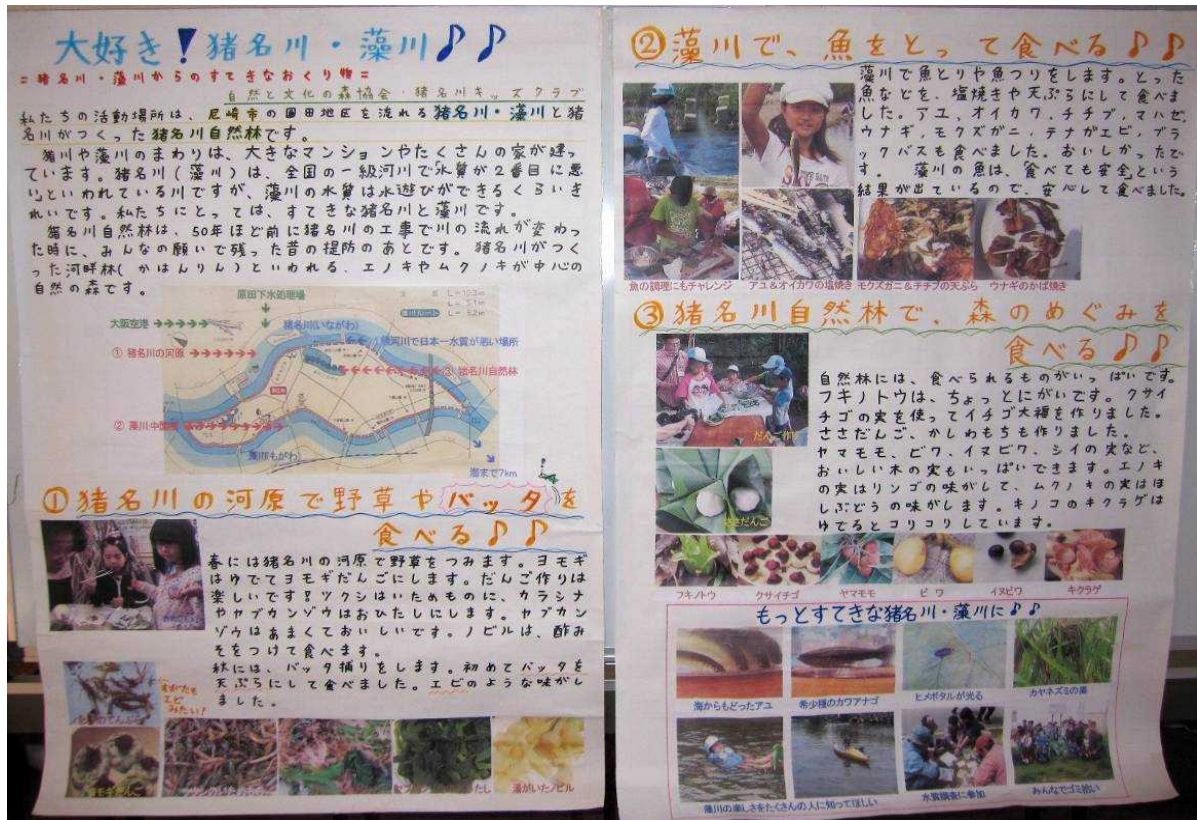 大好き!猪名川・藻川♪♪
=猪名川・藻川からのすてきなおくり物=
自然と文化の森協会・猪名川キッズクラブ
私たちの活動場所は、尼崎市の園田地区を流れる猪名川・藻川と猪
名川がつくった猪名川自然林です。
猪川や藻川のまわりは、大きなマンションやたくさんの家が建っ
ています。猪名川(藻川)は、全国の一級河川で水質が2番目に悪
いといわれている川ですが、藻川の水質は水遊びができるくらいき
れいです。私たちにとっては、すてきな猪名川と藻川です。
猪名川自然林は、50年ほど前に猪名川の工事で川の流れが変わっ
た時に、みんなの願いで残った昔の堤防のあとです。猪名川がつく
った河畔林(かはんりん)といわれる、エノキやムクノキが中心の
自然の森です。
原田下水処理場
大阪空港
猪名川(いながわ)
① 猪名川の河原
級河川で日本一水質が悪い場所
③ 猪名川自然林
② 藻川中園橋
藻川(もがわ)
海まで7km
①猪名川の河原で野草やバッタを
食べる♪♪
春には猪名川の河原で野草をつみます。ヨモギ
はゆでてヨモギだんごにします。だんご作りは
楽しいです!ツクシはいためものに、カラシナ
やヤブカンゾウはおひたしにします。ヤブカン
ゾウはあまくておいしいです。ノビルは、酢み
そをつけて食べます。
秋には、バッタ捕りをします。初めてバッタを
天ぷらにして食べました。エビのような味がし
ました。
すがたも
エビ
みたい!
湯がいたノビル
②藻川で、魚をとって食べる♪♪
藻川で魚とりや魚つりをします。とった
魚などを、塩焼きや天ぷらにして食べま
した。アユ、オイカワ、チチブ、マハゼ、
ウナギ、モクズガニ、テナガエビ、ブラ
ックバスも食べました。おいしかったで
す。 藻川の魚は、食べても安全という
結果が出ているので、安心して食べました。
魚の調理にもチャレンジ
アユ&オイカワの塩焼き
モクズガニ&チチブの天ぷら
ウナギのかば焼き
③猪名川自然林で、森のめぐみを
食べる♪♪
自然林には、食べられるものがいっぱいです。
フキノトウは、ちょっとにがいです。クサイ
チゴの実を使ってイチゴ大福を作りました。
ささだんご、かしわもちも作りました。
ヤマモモ、ビワ、イヌビワ、シイの実など、
おいしい木の実もいっぱいできます。エノキ
の実はリンゴの味がして、ムクノキの実はほ
しぶどうの味がします。キノコのキクラゲは
ゆでるとコリコリしています。
だんご作り
ささだんご
フキノトウ
クサイチゴ
ヤマモモ
ビワ
イヌビワ
キクラゲ
もっとすてきな猪名川・藻川に♪♪
海からもどったアユ
希少種のカワアナゴ
ヒメボタルが光る
カヤネズミの巣
藻川の楽しさをたくさんの人に知ってほしい
水質調査に参加
みんなでゴミ拾い